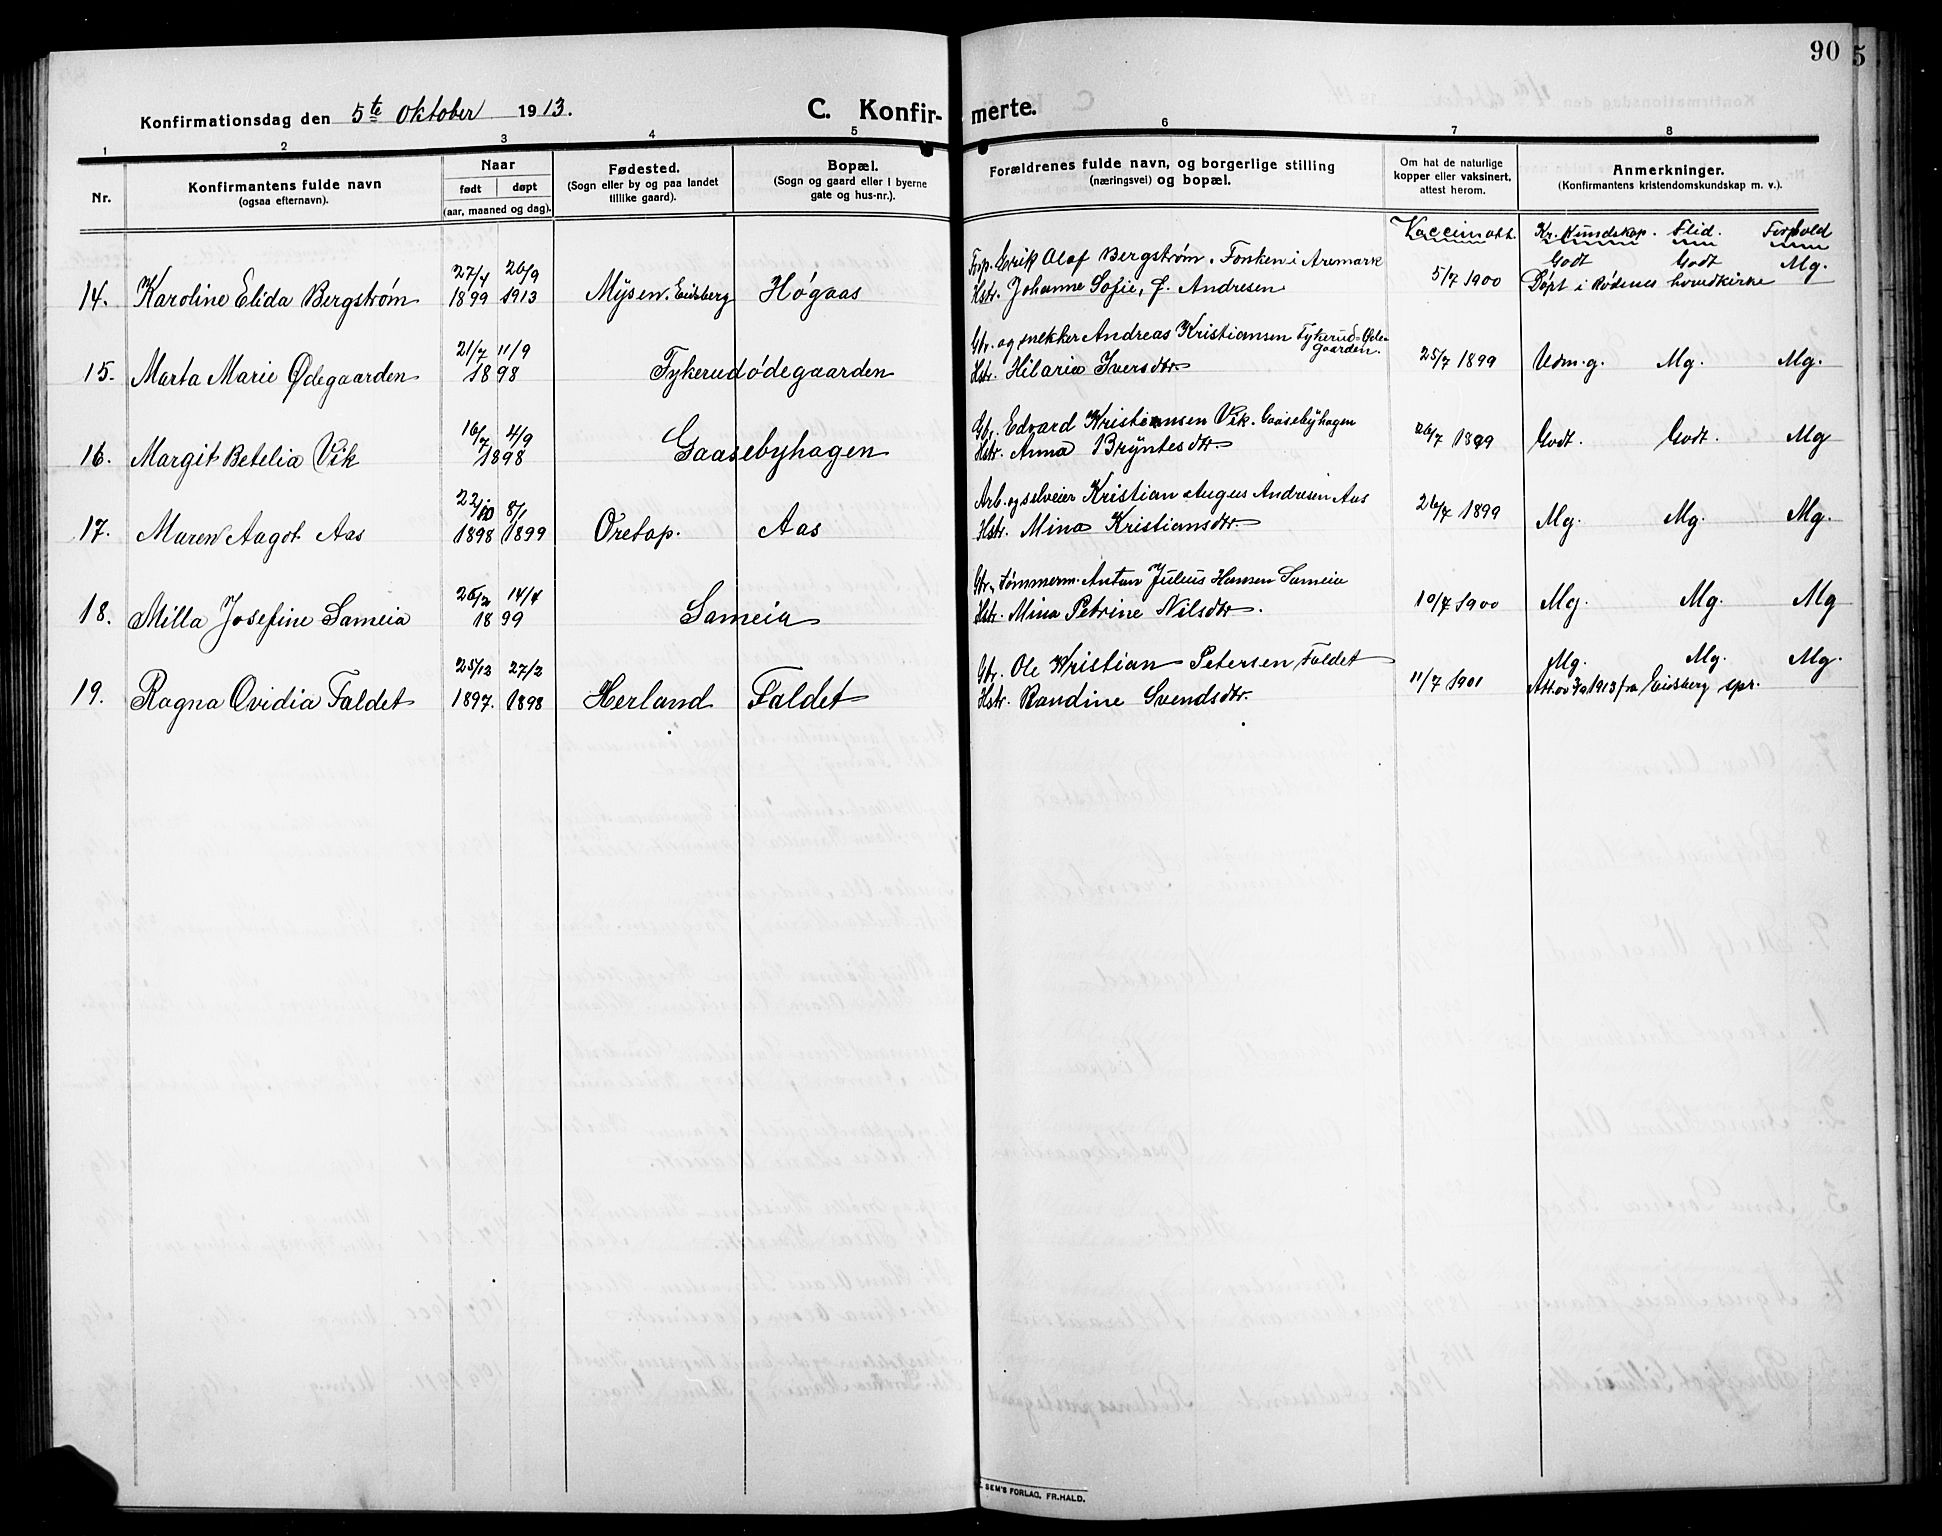 90 5
Konfirmationsdag den 5te Oktober 1913.
C. Konfirmerte.
1 2 3 4 5 6 7 8
Nr.
Konfirmantens fulde navn
(ogsaa efternavn).
Naar
født døpt
(aar, maaned og dag).
Fødested.
(Sogn eller by og paa landet
tillike gaard).
Bopæl.
(Sogn og gaard eller i byerne
gate og hus-nr.).
Forældrenes fulde navn, og borgerlige stilling
(næringsvei) og bopæl.
Om hat de naturlige
kopper eller vaksinert,
attest herom.
Anmerkninger.
(Konfirmantens kristendomskundskap m. v.).
Vaccinatt. Kr. Kundskap. Flid. Forhold
27/4 26/9 Frp. Erik Olaf Bergstrøm. Fonken i Aremark Godt Godt Mg.
14. Karoline Elida Bergstrøm 1899 1913 Mysen. Eidsberg Høgaas Hstr. Johanne Sofie, f. Andresen 5/7 1900 Døpt i Rødenes hovedkirke
21/7 11/9 Gbr. og snekker Andreas Kristiansen Tykerud-Øde-
gaarden.
15. Marta Marie Ødegaarden 1898 Tykerudødegaarden Hstr. Hilaria Iversdtr. 25/7 1899 Udm.g. Mg. Mg.
16/7 4/9 Gbr. Edvard Kristiansen Vik. Gaasebyhagen
16. Margit Betelia Vik 1898 Gaasebyhagen Hstr. Anna Bryntesdtr. 26/7 1899 Godt. Godt. Mg
22/10 8/1 Arb. og selveier Kristian August Andresen Aas
17. Maren Aagot Aas 1898 1899 Oretop. Aas Hstr. Mina Kristiansdtr. 26/7 1899 Mg. Mg. Mg.
26/2 14/4 Gbr. tømmerm. Anton Julius Hansen Sameia
18. Milla Josefine Sameia 1899 Sameia Hstr. Mina Petrine Nilsdtr. 10/7 1900 Mg. Mg. Mg
25/12 27/2 Gbr. Ole Kristian Petersen Faldet Mg. Mg. Mg.
19. Ragna Ovidia Faldet 1897. 1898 Herland Faldet Hstr. Randine Svendsdtr. 11/7 1901 Att. av 3/9 1913 fra Eidsberg spr.
SEM'S FORLAG, FR.HALD.